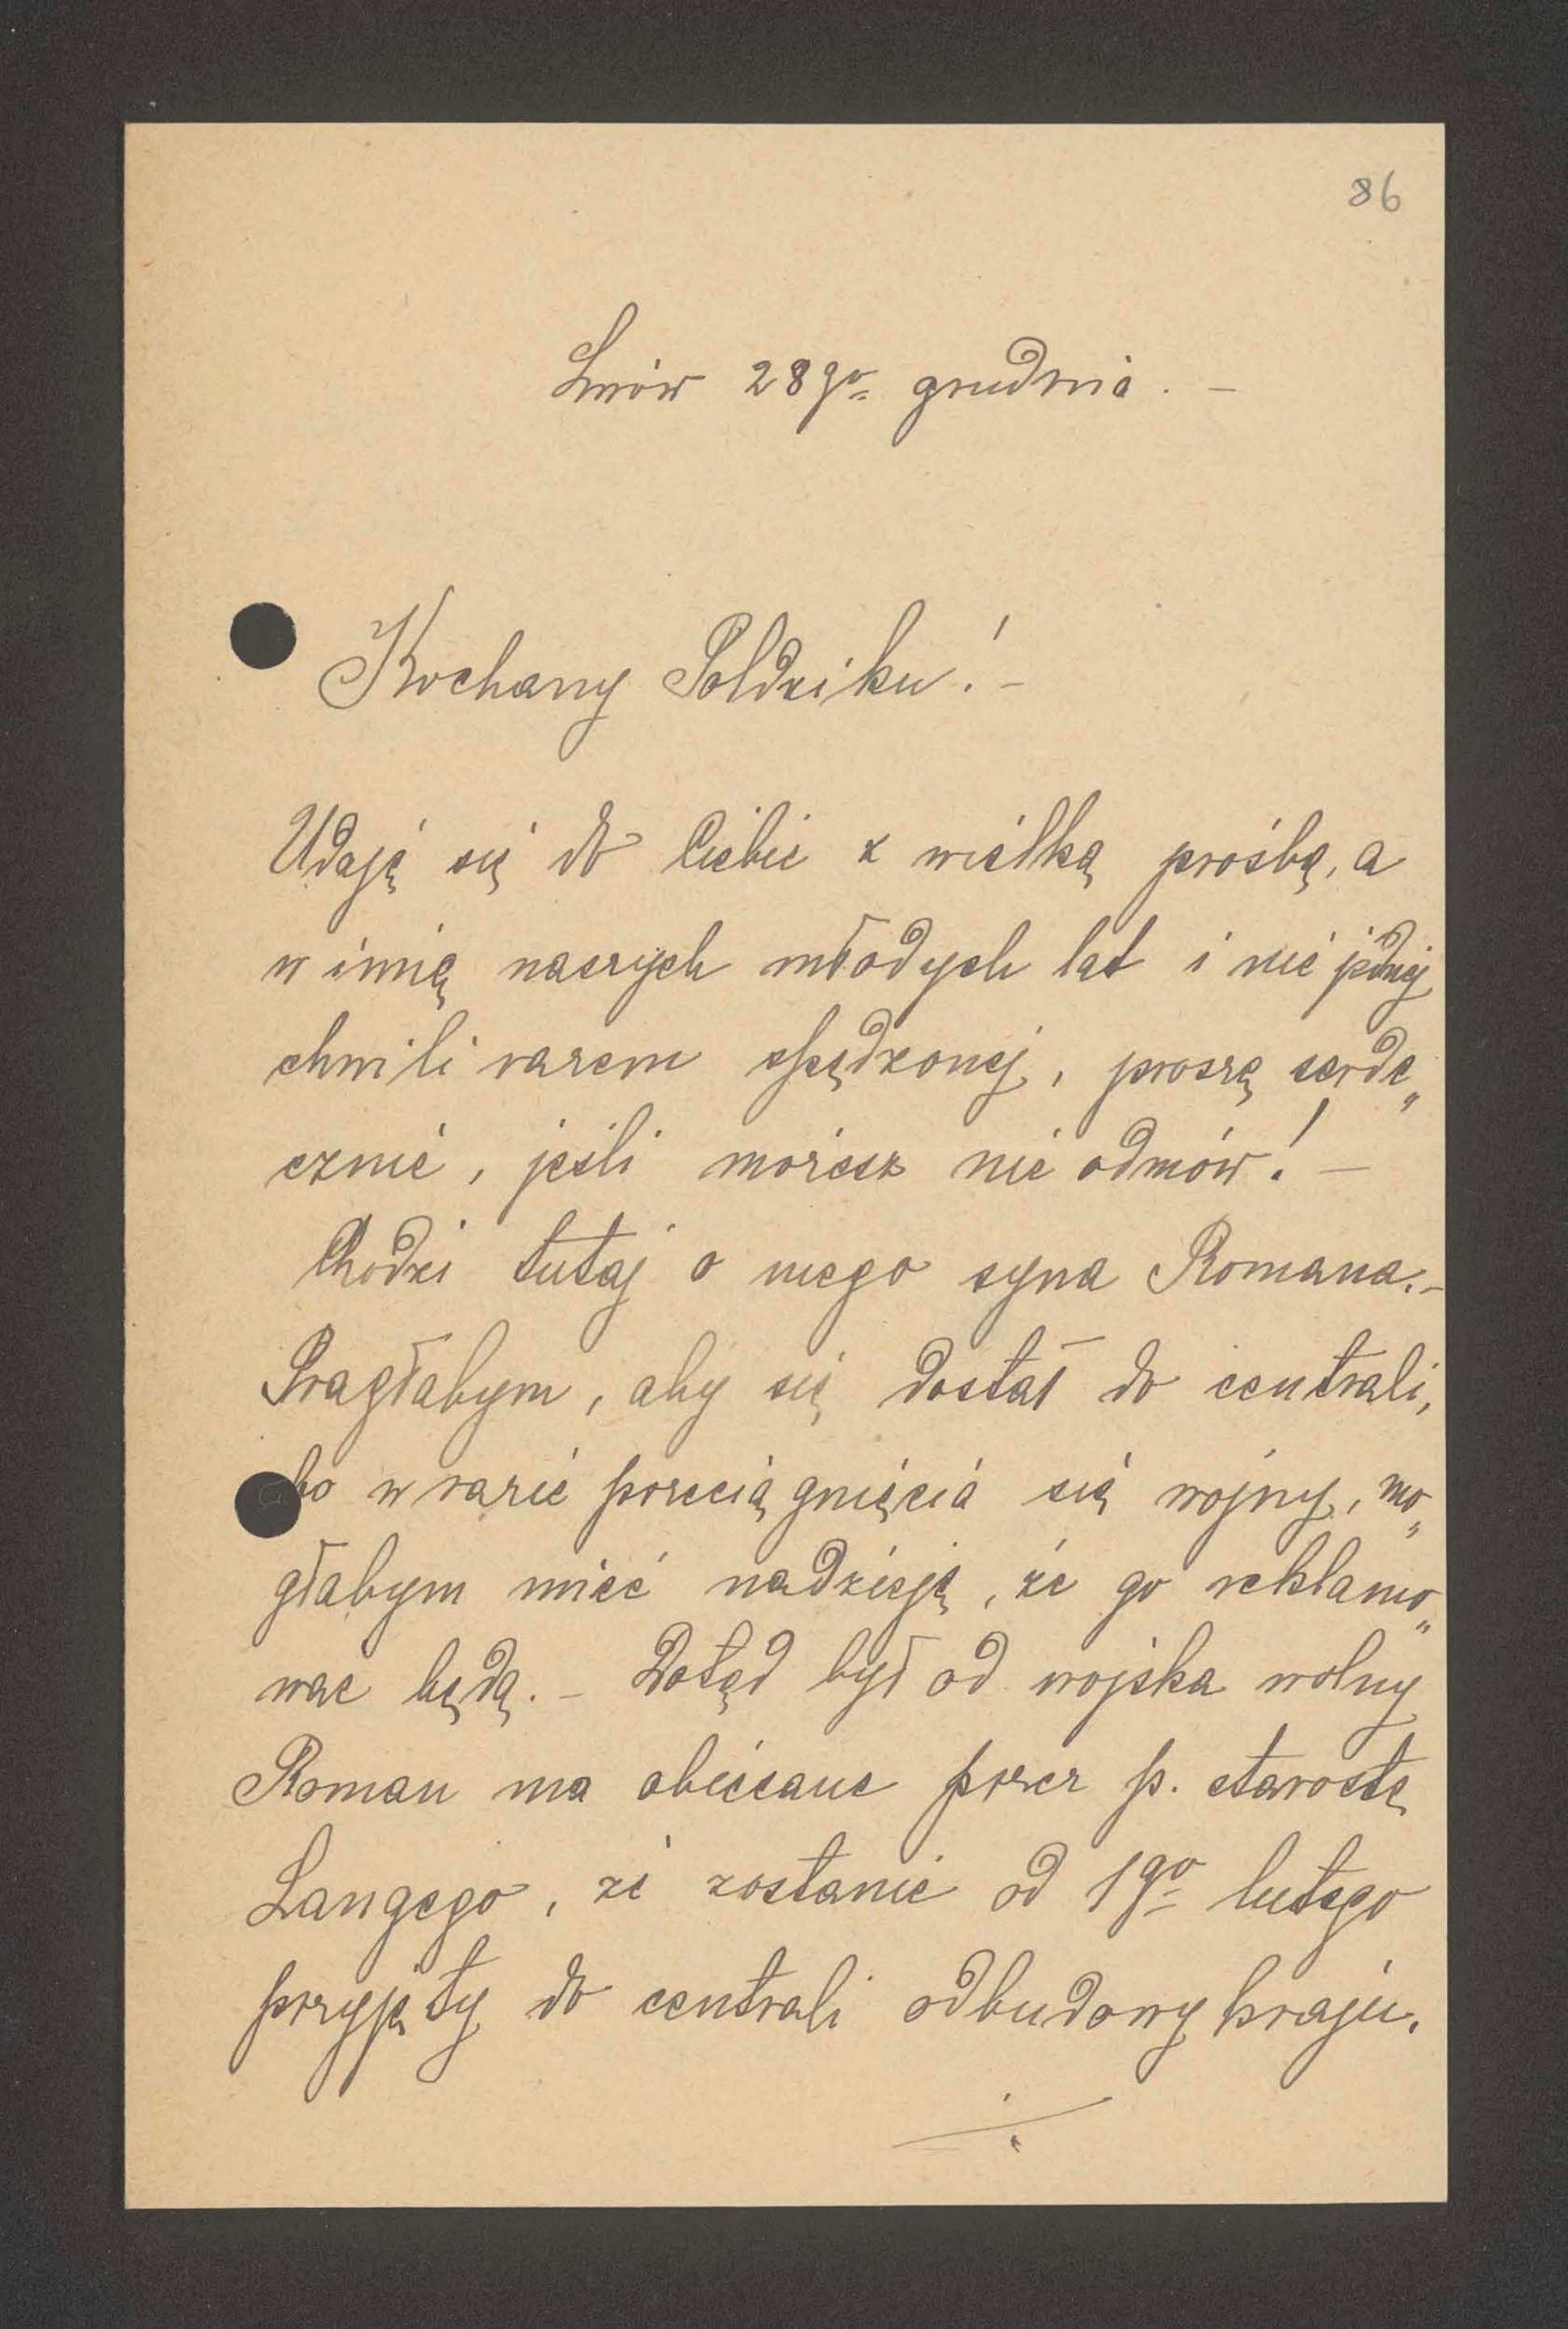 86
Lwów 28go grudnia. –
Kochany Poldziku! –
Udaję się do Ciebie z wielką prośbą, a
w imię naszych młodych lat i nie jednej
chwili razem spędzonej, proszę serde„
cznie, jeśli możesz nie odmów! –
Chodzi tutaj o mego syna Romana. –
Pragłabym, aby się dostał do centrali,
bo w razie przeciągnięcia się wojny, mo„
głabym mieć nadzieję, że go reklamo„
wać będą. – Dotąd był od wojska wolny
Roman ma obiecane przez p. starostę
Langego, że zostanie od 1go lutego
przyjęty do centrali odbudowy kraju.
./.